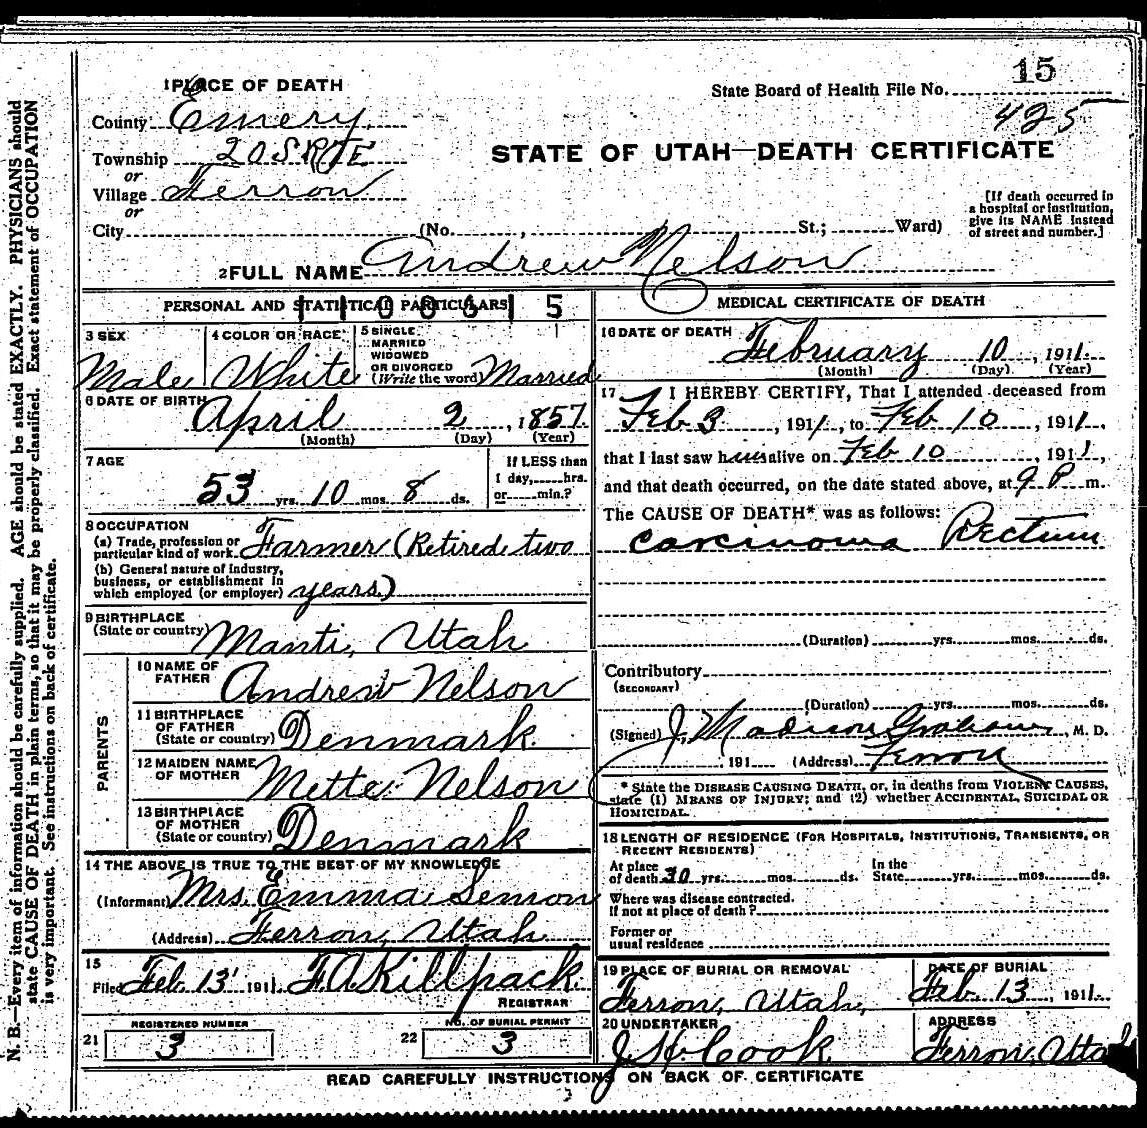 15
State Board of Health File No.
425
1 PLACE OF DEATH
County Emery
Township 20S R7E
or
Village Ferron
or
City (No. , St.; Ward)
STATE OF UTAH—DEATH CERTIFICATE
[If death occurred in
a hospital or institution,
give its NAME instead
of street and number.]
2 FULL NAME Andrew Nelson
PERSONAL AND STATISTICAL PARTICULARS
3 SEX
Male
4 COLOR OR RACE
White
5 SINGLE
MARRIED
WIDOWED
OR DIVORCED
(Write the word) Married
6 DATE OF BIRTH
April 2, 1857.
(Month) (Day) (Year)
7 AGE
53 yrs. 10 mos. 8 ds.
If LESS than
1 day, hrs.
or min.?
8 OCCUPATION
(a) Trade, profession or
particular kind of work. Farmer (Retired two
(b) General nature of industry,
business, or establishment in
which employed (or employer) years.)
9 BIRTHPLACE
(State or country) Manti, Utah
PARENTS
10 NAME OF
FATHER Andrew Nelson
11 BIRTHPLACE
OF FATHER
(State or country) Denmark.
12 MAIDEN NAME
OF MOTHER Mette Nelson
13 BIRTHPLACE
OF MOTHER
(State or country) Denmark
14 THE ABOVE IS TRUE TO THE BEST OF MY KNOWLEDGE
(Informant) Mrs. Emma
(Address) Ferron, Utah.
15
Filed Feb. 13 1911. F.A. Killpack
REGISTRAR
21 REGISTERED NUMBER
3
22 NO. OF BURIAL PERMIT
3
MEDICAL CERTIFICATE OF DEATH
16 DATE OF DEATH
February 10, 1911.
(Month) (Day) (Year)
17 I HEREBY CERTIFY, That I attended deceased from
Feb 3, 1911, to Feb 10, 1911,
that I last saw him alive on Feb 10, 1911,
and that death occurred, on the date stated above, at 9 P m.
The CAUSE OF DEATH* was as follows:
carcinoma Rectum
(Duration) yrs. mos. ds.
Contributory
(SECONDARY)
(Duration) yrs. mos. ds.
(Signed) J. Madison Graham, M. D.
191 (Address) Ferron
* State the DISEASE CAUSING DEATH, or, in deaths from VIOLENT CAUSES,
state (1) MEANS OF INJURY; and (2) whether ACCIDENTAL, SUICIDAL OR
HOMICIDAL.
18 LENGTH OF RESIDENCE (FOR HOSPITALS, INSTITUTIONS, TRANSIENTS, OR
RECENT RESIDENTS)
At place
of death 30 yrs. mos. ds.
In the
State yrs. mos. ds.
Where was disease contracted.
If not at place of death?
Former or
usual residence
19 PLACE OF BURIAL OR REMOVAL
Ferron, Utah,
DATE OF BURIAL
Feb. 13, 1911.
20 UNDERTAKER
J H Cook
ADDRESS
Ferron, Utah
READ CAREFULLY INSTRUCTIONS ON BACK OF CERTIFICATE
N. B.—Every item of information should be carefully supplied. AGE should be stated EXACTLY. PHYSICIANS should
state CAUSE OF DEATH in plain terms, so that it may be properly classified. Exact statement of OCCUPATION
is very important. See instructions on back of certificate.